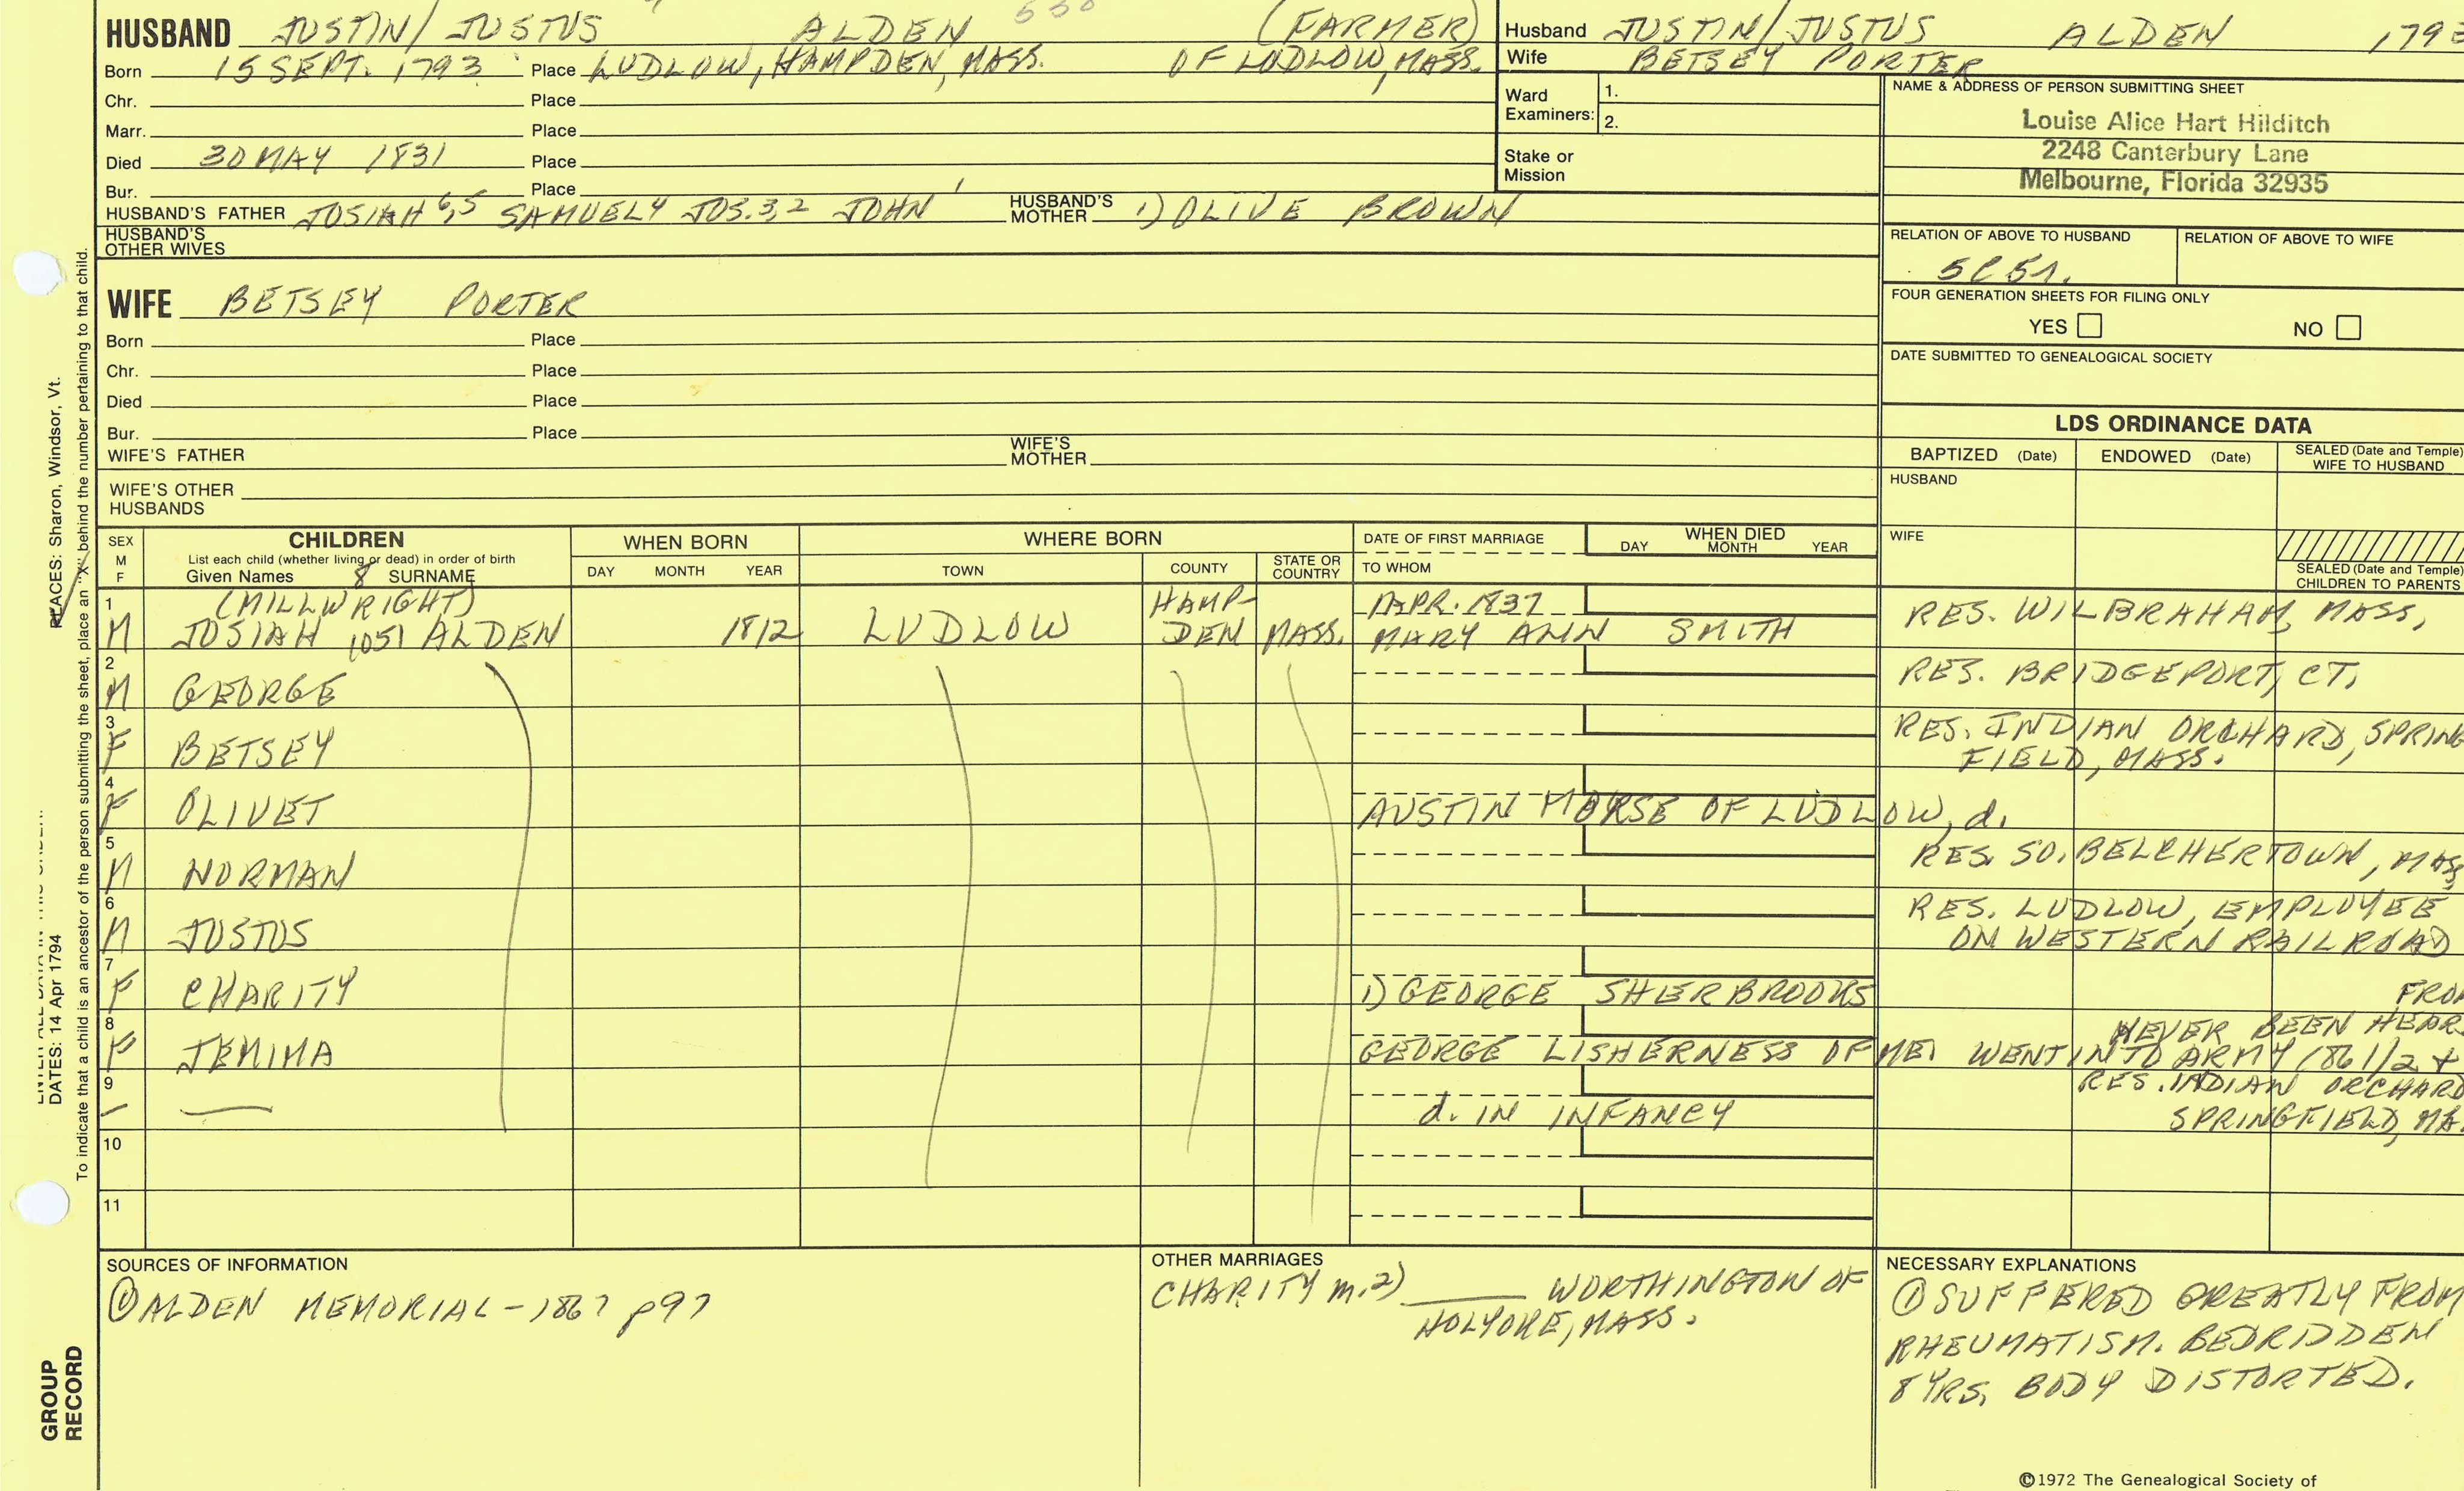 HUSBAND JUSTIN/JUSTUS ALDEN 530 (FARMER)
Born 15 SEPT. 1793 Place LUDLOW, HAMPDEN, MASS. OF LUDLOW, MASS.
Chr. Place
Marr. Place
Died 30 MAY 1831 Place
Bur. Place
HUSBAND'S FATHER JOSIAH 6,5 SAMUEL4 JOS.3,2 JOHN 1 HUSBAND'S MOTHER 1) OLIVE BROWN
HUSBAND'S OTHER WIVES
Husband JUSTIN/JUSTUS ALDEN 1793
Wife BETSEY PORTER
Ward Examiners: 1.
2.
Stake or Mission
NAME & ADDRESS OF PERSON SUBMITTING SHEET
Louise Alice Hart Hilditch
2248 Canterbury Lane
Melbourne, Florida 32935
RELATION OF ABOVE TO HUSBAND RELATION OF ABOVE TO WIFE
FOUR GENERATION SHEETS FOR FILING ONLY
YES NO
DATE SUBMITTED TO GENEALOGICAL SOCIETY
WIFE BETSEY PORTER
Born Place
Chr. Place
Died Place
Bur. Place
WIFE'S FATHER WIFE'S MOTHER
WIFE'S OTHER HUSBANDS
LDS ORDINANCE DATA
BAPTIZED (Date) ENDOWED (Date) SEALED (Date and Temple) WIFE TO HUSBAND
HUSBAND
WIFE
SEALED (Date and Temple) CHILDREN TO PARENTS
SEX M F
CHILDREN
List each child (whether living or dead) in order of birth
Given Names 8 SURNAME
WHEN BORN
DAY MONTH YEAR
WHERE BORN
TOWN COUNTY STATE OR COUNTRY
DATE OF FIRST MARRIAGE
TO WHOM
WHEN DIED
DAY MONTH YEAR
1 (MILLWRIGHT) HAMP- APR. 1837
M JOSIAH 1051 ALDEN 1812 LUDLOW DEN MASS. MARY ANN SMITH RES. WILBRAHAM, MASS,
2
M GEORGE RES. BRIDGEPORT, CT,
3
F BETSEY RES. INDIAN ORCHARD, SPRING
FIELD, MASS.
4
F OLIVET AUSTIN MORSE OF LUDLOW, d.
5
M NORMAN RES. SO. BELCHERTOWN, MASS
6
M JUSTUS RES. LUDLOW, EMPLOYEE
ON WESTERN RAILROAD
7
F CHARITY 1) GEORGE SHERBROOKS FROM
8 NEVER BEEN HEAR
F JEMIMA GEORGE LISHERNESS OF ME. WENT INTO ARMY 1861/2 +
9 RES. INDIAN ORCHARD
— — d. IN INFANCY SPRINGFIELD, MA.
10
11
SOURCES OF INFORMATION
① ALDEN MEMORIAL - 1867 p97
OTHER MARRIAGES
CHARITY m. 2) ____ WORTHINGTON OF
HOLYOKE, MASS.
NECESSARY EXPLANATIONS
① SUFFERED GREATLY FROM
RHEUMATISM. BEDRIDDEN
8 YRS. BODY DISTORTED.
©1972 The Genealogical Society of
PLACES: Sharon, Windsor, Vt.
DATES: 14 Apr 1794
To indicate that a child is an ancestor of the person submitting the sheet, place an "X" behind the number pertaining to that child.
GROUP
RECORD